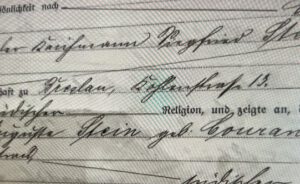 sönlichkeit nach
der Kaufmann Siegfried Ste
haft zu Breslau, Kohlenstraße 13.
üdischer Religion, und zeigte an, d
uguste Stein geb. Couran